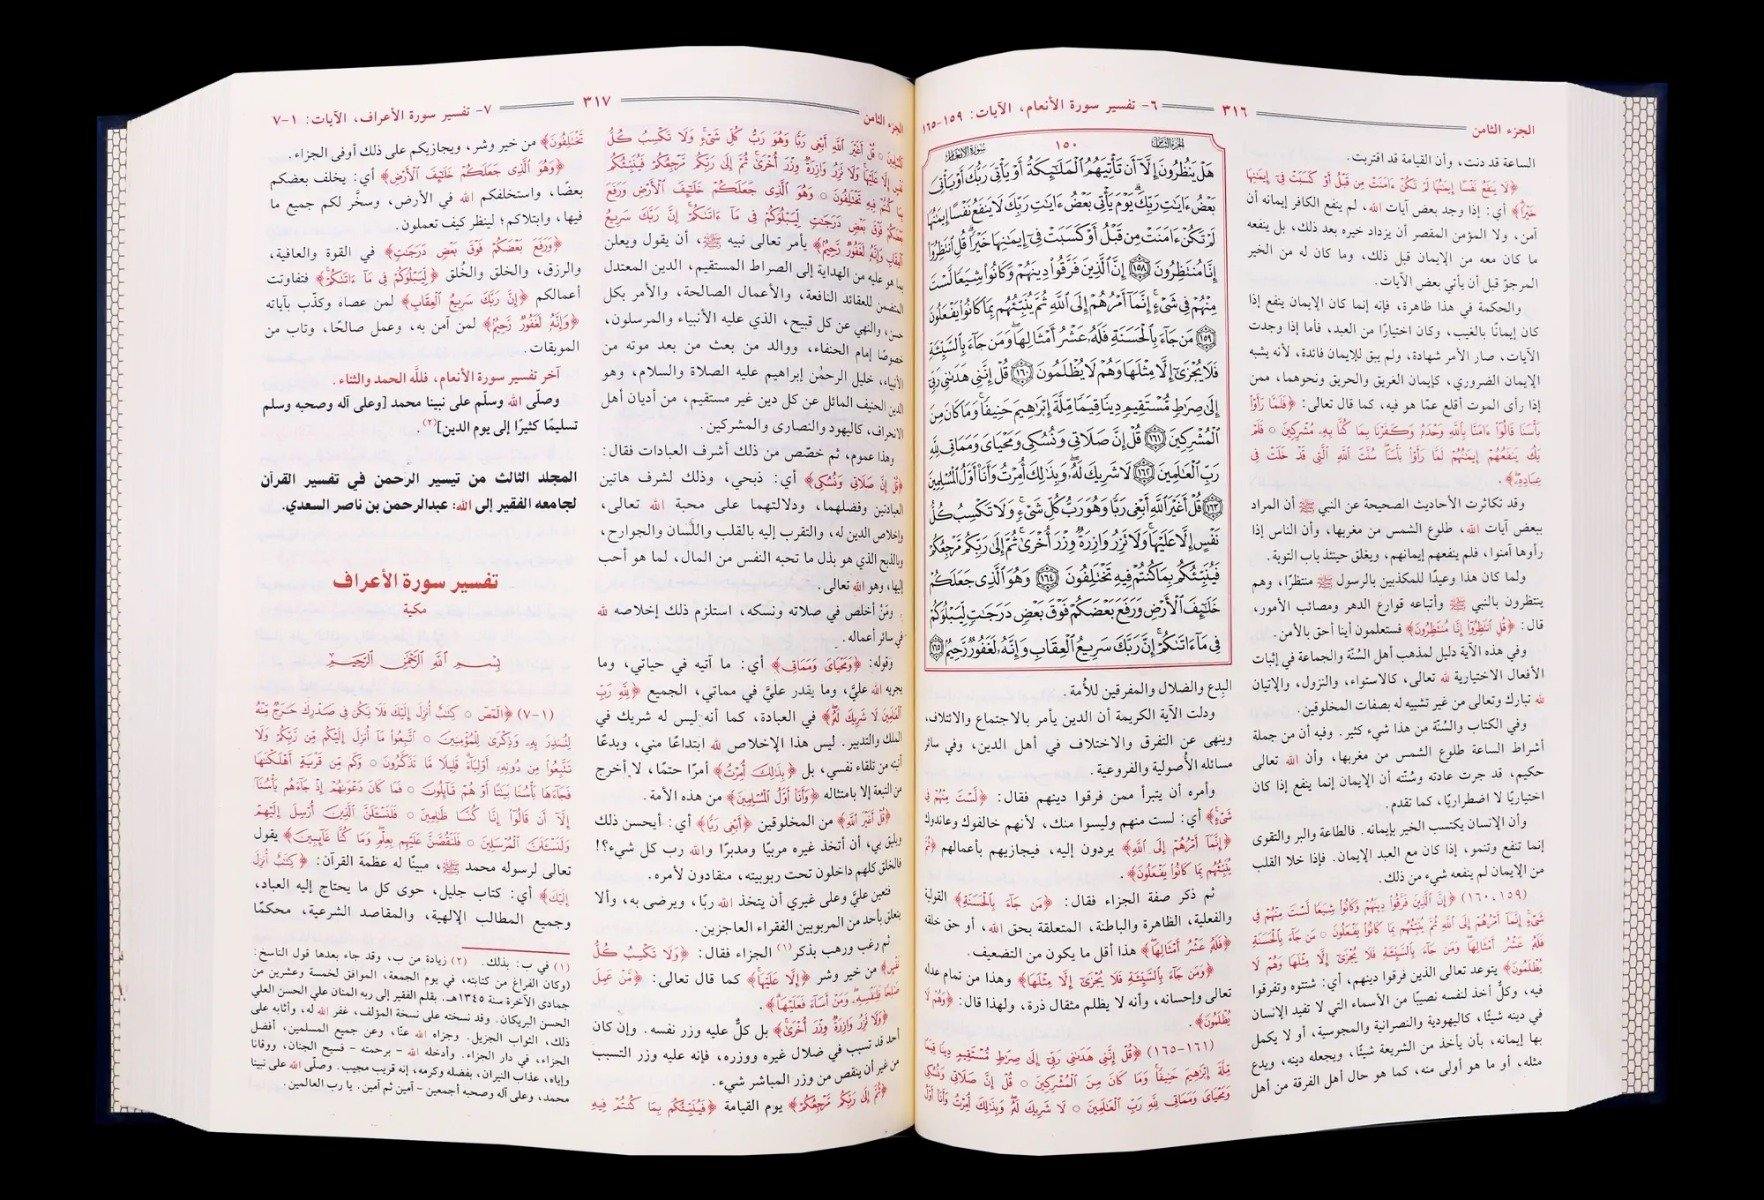 الجزء الثامن
٣١٦
٦- تفسير سورة الأنعام، الآيات: ١٥٩-١٦٥
الساعة قد دنت، وأن القيامة قد اقتربت.
﴿لَا يَنفَعُ نَفْسًا إِيمَٰنُهَا لَمْ تَكُنْ ءَامَنَتْ مِن قَبْلُ أَوْ كَسَبَتْ فِىٓ إِيمَٰنِهَا
خَيْرًا﴾ أي: إذا وجد بعض آيات الله، لم ينفع الكافر إيمانه أن
آمن، ولا المؤمن المقصر أن يزداد خيره بعد ذلك، بل ينفعه
ما كان معه من الإيمان قبل ذلك، وما كان له من الخير
المرجوّ قبل أن يأتي بعض الآيات.
والحكمة في هذا ظاهرة، فإنه إنما كان الإيمان ينفع إذا
كان إيمانًا بالغيب، وكان اختيارًا من العبد، فأما إذا وجدت
الآيات، صار الأمر شهادة، ولم يبق للإيمان فائدة، لأنه يشبه
الإيمان الضروري، كإيمان الغريق والحريق ونحوهما، ممن
إذا رأى الموت أقلع عمّا هو فيه، كما قال تعالى: ﴿فَلَمَّا رَأَوْا۟
بَأْسَنَا قَالُوٓا۟ ءَامَنَّا بِٱللَّهِ وَحْدَهُۥ وَكَفَرْنَا بِمَا كُنَّا بِهِۦ مُشْرِكِينَ ۝ فَلَمْ
يَكُ يَنفَعُهُمْ إِيمَٰنُهُمْ لَمَّا رَأَوْا۟ بَأْسَنَا سُنَّتَ ٱللَّهِ ٱلَّتِى قَدْ خَلَتْ فِى
عِبَادِهِۦ﴾.
وقد تكاثرت الأحاديث الصحيحة عن النبي ﷺ أن المراد
ببعض آيات الله، طلوع الشمس من مغربها، وأن الناس إذا
رأوها آمنوا، فلم ينفعهم إيمانهم، ويغلق حينئذ باب التوبة.
ولما كان هذا وعيدًا للمكذبين بالرسول ﷺ منتظرًا، وهم
ينتظرون بالنبي ﷺ وأتباعه قوارع الدهر ومصائب الأمور،
قال: ﴿قُلِ ٱنتَظِرُوٓا۟ إِنَّا مُنتَظِرُونَ﴾ فستعلمون أينا أحق بالأمن.
وفي هذه الآية دليل لمذهب أهل السُنّة والجماعة في إثبات
الأفعال الاختيارية لله تعالى، كالاستواء، والنزول، والإتيان
لله تبارك وتعالى من غير تشبيه له بصفات المخلوقين.
وفي الكتاب والسُنّة من هذا شيء كثير. وفيه أن من جملة
أشراط الساعة طلوع الشمس من مغربها، وأن الله تعالى
حكيم، قد جرت عادته وسُنّته أن الإيمان إنما ينفع إذا كان
اختياريًا لا اضطراريًا، كما تقدم.
وأن الإنسان يكتسب الخير بإيمانه. فالطاعة والبر والتقوى
إنما تنفع وتنمو، إذا كان مع العبد الإيمان. فإذا خلا القلب
من الإيمان لم ينفعه شيء من ذلك.
(١٥٩، ١٦٠) ﴿إِنَّ ٱلَّذِينَ فَرَّقُوا۟ دِينَهُمْ وَكَانُوا۟ شِيَعًا لَّسْتَ مِنْهُمْ فِى
شَىْءٍ إِنَّمَآ أَمْرُهُمْ إِلَى ٱللَّهِ ثُمَّ يُنَبِّئُهُم بِمَا كَانُوا۟ يَفْعَلُونَ ۝ مَن جَآءَ بِٱلْحَسَنَةِ
فَلَهُۥ عَشْرُ أَمْثَالِهَا وَمَن جَآءَ بِٱلسَّيِّئَةِ فَلَا يُجْزَىٰٓ إِلَّا مِثْلَهَا وَهُمْ لَا
يُظْلَمُونَ﴾ يتوعد تعالى الذين فرقوا دينهم، أي: شتتوه وتفرقوا
فيه، وكلٌّ أخذ لنفسه نصيبًا من الأسماء التي لا تفيد الإنسان
في دينه شيئًا، كاليهودية والنصرانية والمجوسية، أو لا يكمل
بها إيمانه، بأن يأخذ من الشريعة شيئًا، ويجعله دينه، ويدع
مثله، أو ما هو أولى منه، كما هو حال أهل الفرقة من أهل
الجزء الثامن
١٥٠
سورة الأنعام
هَلْ يَنظُرُونَ إِلَّآ أَن تَأْتِيَهُمُ ٱلْمَلَٰٓئِكَةُ أَوْ يَأْتِىَ رَبُّكَ أَوْ يَأْتِىَ
بَعْضُ ءَايَٰتِ رَبِّكَ يَوْمَ يَأْتِى بَعْضُ ءَايَٰتِ رَبِّكَ لَا يَنفَعُ نَفْسًا إِيمَٰنُهَا
لَمْ تَكُنْ ءَامَنَتْ مِن قَبْلُ أَوْ كَسَبَتْ فِىٓ إِيمَٰنِهَا خَيْرًا قُلِ ٱنتَظِرُوٓا۟
إِنَّا مُنتَظِرُونَ ١٥٨ إِنَّ ٱلَّذِينَ فَرَّقُوا۟ دِينَهُمْ وَكَانُوا۟ شِيَعًا لَّسْتَ
مِنْهُمْ فِى شَىْءٍ إِنَّمَآ أَمْرُهُمْ إِلَى ٱللَّهِ ثُمَّ يُنَبِّئُهُم بِمَا كَانُوا۟ يَفْعَلُونَ
١٥٩ مَن جَآءَ بِٱلْحَسَنَةِ فَلَهُۥ عَشْرُ أَمْثَالِهَا وَمَن جَآءَ بِٱلسَّيِّئَةِ
فَلَا يُجْزَىٰٓ إِلَّا مِثْلَهَا وَهُمْ لَا يُظْلَمُونَ ١٦٠ قُلْ إِنَّنِى هَدَىٰنِى رَبِّىٓ
إِلَىٰ صِرَٰطٍ مُّسْتَقِيمٍ دِينًا قِيَمًا مِّلَّةَ إِبْرَٰهِيمَ حَنِيفًا وَمَا كَانَ مِنَ
ٱلْمُشْرِكِينَ ١٦١ قُلْ إِنَّ صَلَاتِى وَنُسُكِى وَمَحْيَاىَ وَمَمَاتِى لِلَّهِ
رَبِّ ٱلْعَٰلَمِينَ ١٦٢ لَا شَرِيكَ لَهُۥ وَبِذَٰلِكَ أُمِرْتُ وَأَنَا۠ أَوَّلُ ٱلْمُسْلِمِينَ
١٦٣ قُلْ أَغَيْرَ ٱللَّهِ أَبْغِى رَبًّا وَهُوَ رَبُّ كُلِّ شَىْءٍ وَلَا تَكْسِبُ كُلُّ
نَفْسٍ إِلَّا عَلَيْهَا وَلَا تَزِرُ وَازِرَةٌ وِزْرَ أُخْرَىٰ ثُمَّ إِلَىٰ رَبِّكُم مَّرْجِعُكُمْ
فَيُنَبِّئُكُم بِمَا كُنتُمْ فِيهِ تَخْتَلِفُونَ ١٦٤ وَهُوَ ٱلَّذِى جَعَلَكُمْ
خَلَٰٓئِفَ ٱلْأَرْضِ وَرَفَعَ بَعْضَكُمْ فَوْقَ بَعْضٍ دَرَجَٰتٍ لِّيَبْلُوَكُمْ
فِى مَآ ءَاتَىٰكُمْ إِنَّ رَبَّكَ سَرِيعُ ٱلْعِقَابِ وَإِنَّهُۥ لَغَفُورٌ رَّحِيمٌ ١٦٥
البدع والضلال والمفرقين للأمة.
ودلت الآية الكريمة أن الدين يأمر بالاجتماع والائتلاف،
وينهى عن التفرق والاختلاف في أهل الدين، وفي سائر
مسائله الأصولية والفروعية.
وأمره أن يتبرأ ممن فرقوا دينهم فقال: ﴿لَّسْتَ مِنْهُمْ فِى
شَىْءٍ﴾ أي: لست منهم وليسوا منك، لأنهم خالفوك وعاندوك
﴿إِنَّمَآ أَمْرُهُمْ إِلَى ٱللَّهِ﴾ يردون إليه، فيجازيهم بأعمالهم ﴿ثُمَّ
يُنَبِّئُهُم بِمَا كَانُوا۟ يَفْعَلُونَ﴾.
ثم ذكر صفة الجزاء فقال: ﴿مَن جَآءَ بِٱلْحَسَنَةِ﴾ القولية
والفعلية، الظاهرة والباطنة، المتعلقة بحق الله، أو حق خلقه
﴿فَلَهُۥ عَشْرُ أَمْثَالِهَا﴾ هذا أقل ما يكون من التضعيف.
﴿وَمَن جَآءَ بِٱلسَّيِّئَةِ فَلَا يُجْزَىٰٓ إِلَّا مِثْلَهَا﴾ وهذا من تمام عدله
تعالى وإحسانه، وأنه لا يظلم مثقال ذرة، ولهذا قال: ﴿وَهُمْ لَا
يُظْلَمُونَ﴾.
(١٦١-١٦٥) ﴿قُلْ إِنَّنِى هَدَىٰنِى رَبِّىٓ إِلَىٰ صِرَٰطٍ مُّسْتَقِيمٍ دِينًا قِيَمًا
مِّلَّةَ إِبْرَٰهِيمَ حَنِيفًا وَمَا كَانَ مِنَ ٱلْمُشْرِكِينَ ۝ قُلْ إِنَّ صَلَاتِى وَنُسُكِى
وَمَحْيَاىَ وَمَمَاتِى لِلَّهِ رَبِّ ٱلْعَٰلَمِينَ ۝ لَا شَرِيكَ لَهُۥ وَبِذَٰلِكَ أُمِرْتُ وَأَنَا۠ أَوَّلُ
الجزء الثامن
٣١٧
٧- تفسير سورة الأعراف، الآيات: ١-٧
ٱلْمُسْلِمِينَ ۝ قُلْ أَغَيْرَ ٱللَّهِ أَبْغِى رَبًّا وَهُوَ رَبُّ كُلِّ شَىْءٍ وَلَا تَكْسِبُ كُلُّ
نَفْسٍ إِلَّا عَلَيْهَا وَلَا تَزِرُ وَازِرَةٌ وِزْرَ أُخْرَىٰ ثُمَّ إِلَىٰ رَبِّكُم مَّرْجِعُكُمْ فَيُنَبِّئُكُم
بِمَا كُنتُمْ فِيهِ تَخْتَلِفُونَ ۝ وَهُوَ ٱلَّذِى جَعَلَكُمْ خَلَٰٓئِفَ ٱلْأَرْضِ وَرَفَعَ
بَعْضَكُمْ فَوْقَ بَعْضٍ دَرَجَٰتٍ لِّيَبْلُوَكُمْ فِى مَآ ءَاتَىٰكُمْ إِنَّ رَبَّكَ سَرِيعُ
ٱلْعِقَابِ وَإِنَّهُۥ لَغَفُورٌ رَّحِيمٌ﴾ يأمر تعالى نبيه ﷺ، أن يقول ويعلن
بما هو عليه من الهداية إلى الصراط المستقيم، الدين المعتدل
المتضمن للعقائد النافعة، والأعمال الصالحة، والأمر بكل
حسن، والنهي عن كل قبيح، الذي عليه الأنبياء والمرسلون،
خصوصًا إمام الحنفاء، ووالد من بعث من بعد موته من
الأنبياء، خليل الرحمٰن إبراهيم عليه الصلاة والسلام، وهو
الدين الحنيف المائل عن كل دين غير مستقيم، من أديان أهل
الانحراف، كاليهود والنصارى والمشركين.
وهذا عموم، ثم خصّص من ذلك أشرف العبادات فقال:
﴿قُلْ إِنَّ صَلَاتِى وَنُسُكِى﴾ أي: ذبحي، وذلك لشرف هاتين
العبادتين وفضلهما، ودلالتهما على محبة الله تعالى،
وإخلاص الدين له، والتقرب إليه بالقلب واللسان والجوارح،
وبالذبح الذي هو بذل ما تحبه النفس من المال، لما هو أحب
إليها، وهو الله تعالى.
ومَنْ أخلص في صلاته ونسكه، استلزم ذلك إخلاصه لله
في سائر أعماله.
وقوله: ﴿وَمَحْيَاىَ وَمَمَاتِى﴾ أي: ما آتيه في حياتي، وما
يجريه الله عليَّ، وما يقدر عليَّ في مماتي، الجميع ﴿لِلَّهِ رَبِّ
ٱلْعَٰلَمِينَ لَا شَرِيكَ لَهُۥ﴾ في العبادة، كما أنه ليس له شريك في
الملك والتدبير. ليس هذا الإخلاص لله ابتداعًا مني، وبدعًا
أتيته من تلقاء نفسي، بل ﴿بِذَٰلِكَ أُمِرْتُ﴾ أمرًا حتمًا، لا أخرج
من التبعة إلا بامتثاله ﴿وَأَنَا۠ أَوَّلُ ٱلْمُسْلِمِينَ﴾ من هذه الأمة.
﴿قُلْ أَغَيْرَ ٱللَّهِ﴾ من المخلوقين ﴿أَبْغِى رَبًّا﴾ أي: أيحسن ذلك
ويليق بي، أن أتخذ غيره مربيًا ومدبرًا والله رب كل شيء؟!
فالخلق كلهم داخلون تحت ربوبيته، منقادون لأمره.
فتعين عليَّ وعلى غيري أن يتخذ الله ربًا، ويرضى به، وألا
يتعلق بأحد من المربوبين الفقراء العاجزين.
ثم رغب ورهب بذكر(١) الجزاء فقال: ﴿وَلَا تَكْسِبُ كُلُّ
نَفْسٍ﴾ من خير وشر ﴿إِلَّا عَلَيْهَا﴾ كما قال تعالى: ﴿مَّنْ عَمِلَ
صَٰلِحًا فَلِنَفْسِهِۦ وَمَنْ أَسَآءَ فَعَلَيْهَا﴾.
﴿وَلَا تَزِرُ وَازِرَةٌ وِزْرَ أُخْرَىٰ﴾ بل كلٌّ عليه وزر نفسه. وإن كان
أحد قد تسبب في ضلال غيره ووزره، فإنه عليه وزر التسبب
من غير أن ينقص من وزر المباشر شيء.
﴿ثُمَّ إِلَىٰ رَبِّكُم مَّرْجِعُكُمْ﴾ يوم القيامة ﴿فَيُنَبِّئُكُم بِمَا كُنتُمْ فِيهِ
تَخْتَلِفُونَ﴾ من خير وشر، ويجازيكم على ذلك أوفى الجزاء.
﴿وَهُوَ ٱلَّذِى جَعَلَكُمْ خَلَٰٓئِفَ ٱلْأَرْضِ﴾ أي: يخلف بعضكم
بعضًا، واستخلفكم الله في الأرض، وسخَّر لكم جميع ما
فيها، وابتلاكم؛ لينظر كيف تعملون.
﴿وَرَفَعَ بَعْضَكُمْ فَوْقَ بَعْضٍ دَرَجَٰتٍ﴾ في القوة والعافية،
والرزق، والخلق والخُلق ﴿لِّيَبْلُوَكُمْ فِى مَآ ءَاتَىٰكُمْ﴾ فتفاوتت
أعمالكم ﴿إِنَّ رَبَّكَ سَرِيعُ ٱلْعِقَابِ﴾ لمن عصاه وكذّب بآياته
﴿وَإِنَّهُۥ لَغَفُورٌ رَّحِيمٌ﴾ لمن آمن به، وعمل صالحًا، وتاب من
الموبقات.
آخر تفسير سورة الأنعام، فللَّه الحمد والثناء.
وصلّى الله وسلّم على نبينا محمد [وعلى آله وصحبه وسلم
تسليمًا كثيرًا إلى يوم الدين](٢).
المجلد الثالث من تيسير الرحمن في تفسير القرآن
لجامعه الفقير إلى الله: عبدالرحمن بن ناصر السعدي.
تفسير سورة الأعراف
مكية
بِسْمِ ٱللَّهِ ٱلرَّحْمَٰنِ ٱلرَّحِيمِ
(١-٧) ﴿الٓمٓصٓ ۝ كِتَٰبٌ أُنزِلَ إِلَيْكَ فَلَا يَكُن فِى صَدْرِكَ حَرَجٌ مِّنْهُ
لِتُنذِرَ بِهِۦ وَذِكْرَىٰ لِلْمُؤْمِنِينَ ۝ ٱتَّبِعُوا۟ مَآ أُنزِلَ إِلَيْكُم مِّن رَّبِّكُمْ وَلَا
تَتَّبِعُوا۟ مِن دُونِهِۦٓ أَوْلِيَآءَ قَلِيلًا مَّا تَذَكَّرُونَ ۝ وَكَم مِّن قَرْيَةٍ أَهْلَكْنَٰهَا
فَجَآءَهَا بَأْسُنَا بَيَٰتًا أَوْ هُمْ قَآئِلُونَ ۝ فَمَا كَانَ دَعْوَىٰهُمْ إِذْ جَآءَهُم بَأْسُنَآ
إِلَّآ أَن قَالُوٓا۟ إِنَّا كُنَّا ظَٰلِمِينَ ۝ فَلَنَسْـَٔلَنَّ ٱلَّذِينَ أُرْسِلَ إِلَيْهِمْ
وَلَنَسْـَٔلَنَّ ٱلْمُرْسَلِينَ ۝ فَلَنَقُصَّنَّ عَلَيْهِم بِعِلْمٍ وَمَا كُنَّا غَآئِبِينَ﴾ يقول
تعالى لرسوله محمد ﷺ، مبينًا له عظمة القرآن: ﴿كِتَٰبٌ أُنزِلَ
إِلَيْكَ﴾ أي: كتاب جليل، حوى كل ما يحتاج إليه العباد،
وجميع المطالب الإلهية، والمقاصد الشرعية، محكمًا
(١) في ب: بذلك. (٢) زيادة من ب، وقد جاء بعدها قول الناسخ:
(وكان الفراغ من كتابته، في يوم الجمعة، الموافق لخمسة وعشرين من
جمادى الآخرة سنة ١٣٤٥هـ. بقلم الفقير إلى ربه المنان علي الحسن العلي
الحسن البريكان. وقد نسخته على نسخة المؤلف، غفر الله له، وأثابه على
ذلك، الثواب الجزيل. وجزاه الله عنّا، وعن جميع المسلمين، أفضل
الجزاء، في دار الجزاء. وأدخله الله - برحمته - فسيح الجنان، ووقانا
وإياه، عذاب النيران، بفضله وكرمه، إنه قريب مجيب. وصلّى الله على نبينا
محمد، وعلى آله وصحبه أجمعين - آمين ثم آمين. يا رب العالمين.